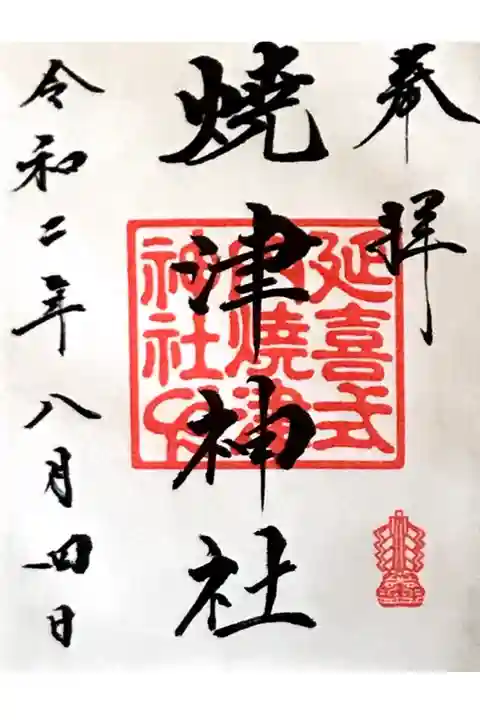 奉拝
燒津神社
延喜式
内燒津
神社印
令和二年八月四日